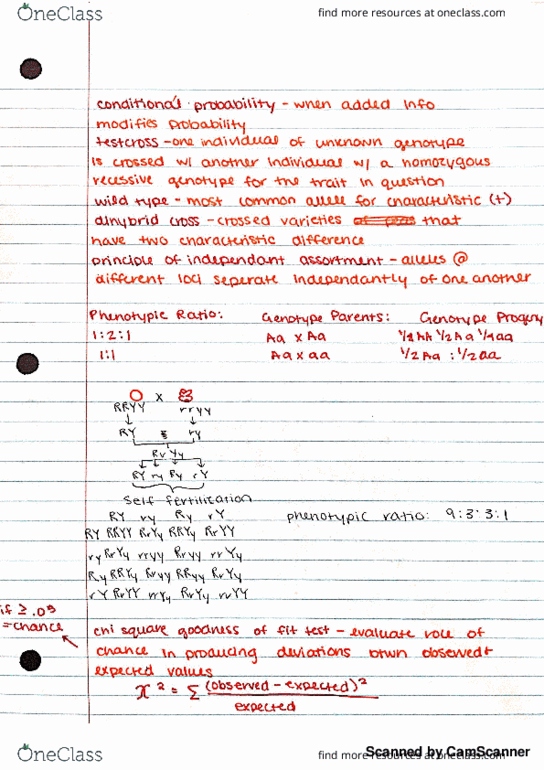 OneClass
find more resources at oneclass.com
conditional probability - when added info
modifies probability
testcross - one individual of unknown genotype
is crossed w/ another individual w/ a homozygous
recessive genotype for the trait in question
wild type - most common allele for characteristic (+)
dihybrid cross - crossed varieties of peas that
have two characteristic difference
principle of independant assortment - alleles @
different loci seperate independantly of one another
Phenotypic Ratio: Genotype Parents: Genotype Progeny
1:2:1 Aa x Aa 1/4 AA 1/2 Aa 1/4 aa
1:1 Aa x aa 1/2 Aa : 1/2 aa
x
RRYY rryy
RY ry
RrYy
RY ry Ry rY
self fertilization
RY ry Ry rY
phenotypic ratio: 9:3:3:1
RY RRYY RrYy RRYy RrYY
ry RrYy rryy Rryy rrYy
Ry RRYy Rryy RRyy RrYy
rY RrYY rrYy RrYy rrYY
if ≥ .05
= chance
chi square goodness of fit test - evaluate role of
chance in producing deviations btwn observed +
expected values
X² = Σ (observed - expected)²
expected
OneClass
find more resources at oneclass.com
Scanned by CamScanner